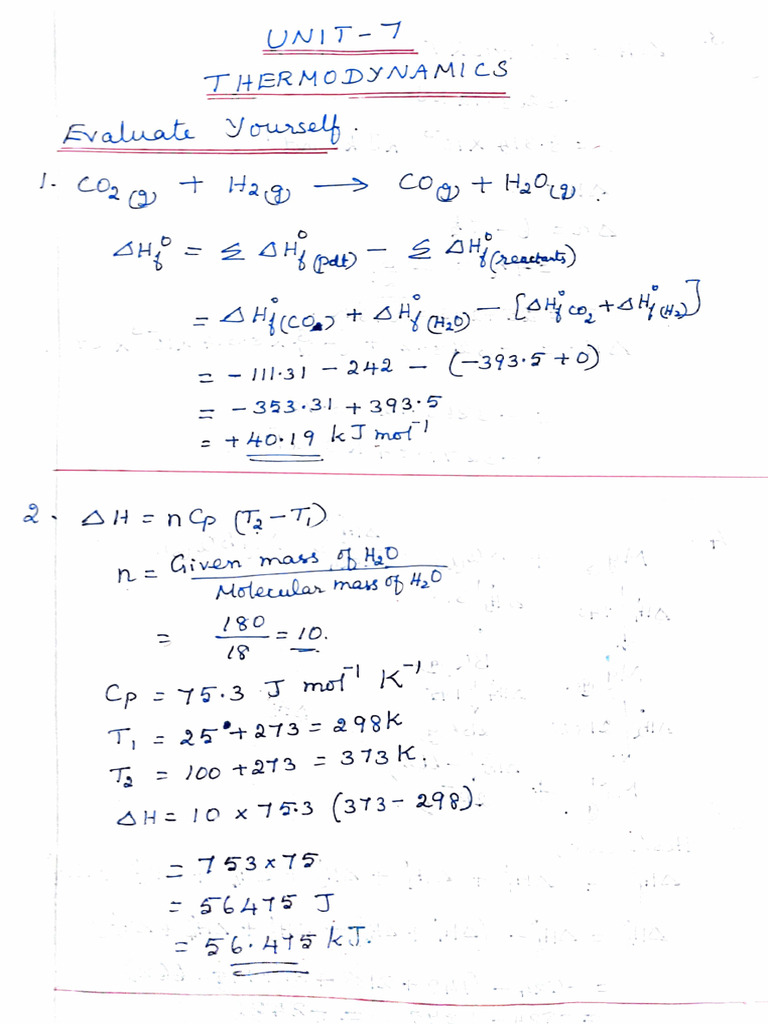 UNIT-7
THERMODYNAMICS
Evaluate Yourself.
1. CO₂(g) + H₂(g) → CO(g) + H₂O(g)
ΔHf° = Σ ΔHf°(pdt) − Σ ΔHf°(reactants)
= ΔHf°(CO) + ΔHf°(H₂O) − [ΔHf°CO₂ + ΔHf°(H₂)]
= −111.31 − 242 − (−393.5 + 0)
= −353.31 + 393.5
= +40.19 kJ mol⁻¹
2. ΔH = n Cp (T₂−T₁)
n = Given mass of H₂O
Molecular mass of H₂O
= 180/18 = 10.
Cp = 75.3 J mol⁻¹ K⁻¹
T₁ = 25° + 273 = 298K
T₂ = 100 + 273 = 373K.
ΔH = 10 × 75.3 (373 − 298).
= 753 × 75
= 56475 J
= 56.475 kJ.